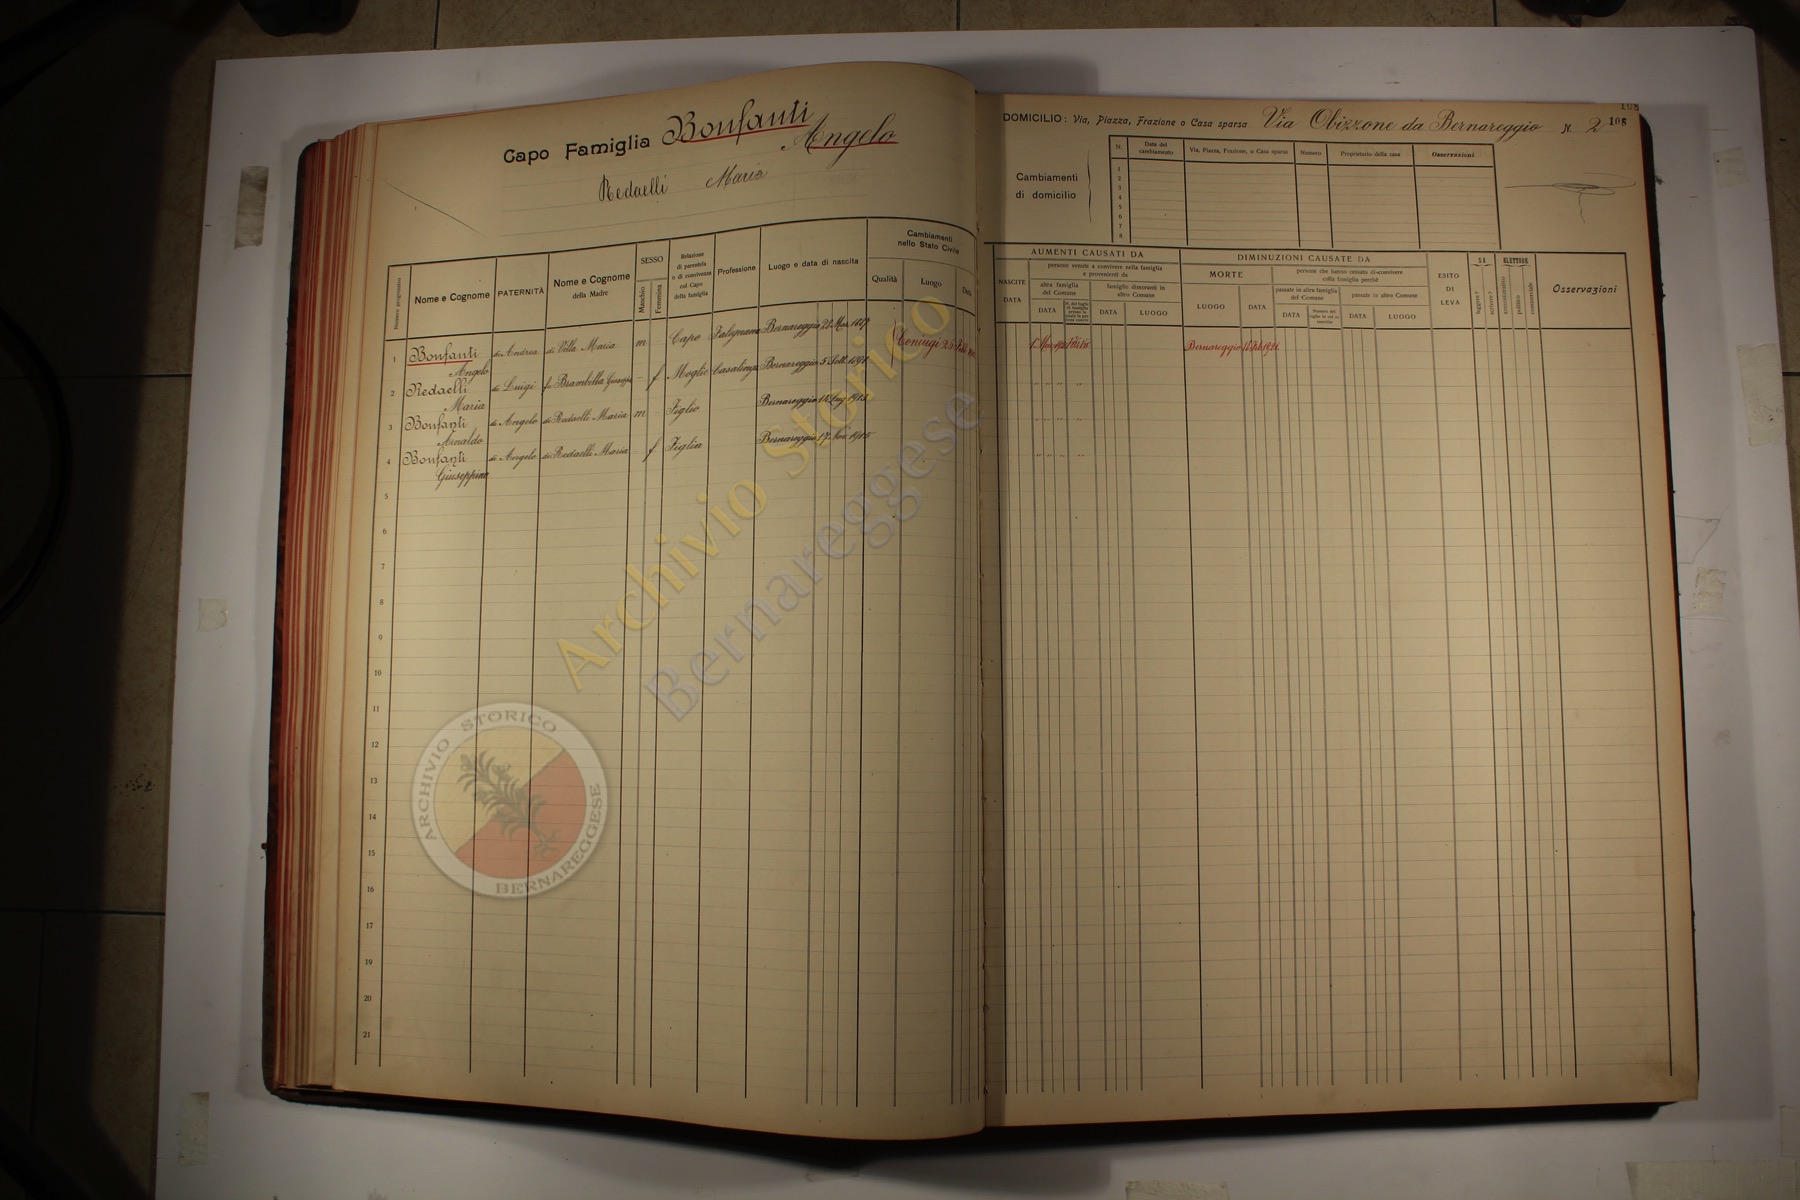 Capo Famiglia Bonfanti Angelo
Redaelli Maria
Numero progressivo
Nome e Cognome
PATERNITÀ
Nome e Cognome della Madre
SESSO
Maschio
Femmina
Relazione di parentela o di convivenza col Capo della famiglia
Professione
Luogo e data di nascita
Cambiamenti nello Stato Civile
Qualità
Luogo
Data
1 Bonfanti Angelo di Andrea di Villa Maria m Capo Falegname Bernareggio Coniugi
2 Redaelli Maria di Luigi Brambilla f Moglie Casalinga Bernareggio
3 Bonfanti Arnaldo di Angelo di Redaelli Maria m Figlio Bernareggio
4 Bonfanti Giuseppina di Angelo di Redaelli Maria f Figlia Bernareggio
5
6
7
8
9
10
11
12
13
14
15
16
17
18
19
20
21
108
DOMICILIO: Via, Piazza, Frazione o Casa sparsa Via Obizzone da Bernareggio N. 2 108
Cambiamenti di domicilio
N.
Data del cambiamento
Via, Piazza, Frazione, o Casa sparsa
Numero
Proprietario della casa
Osservazioni
1
2
3
4
5
6
7
8
AUMENTI CAUSATI DA
NASCITE
DATA
persone venute a convivere nella famiglia e provenienti da
altra famiglia del Comune
DATA
famiglie dimoranti in altro Comune
DATA
LUOGO
DIMINUZIONI CAUSATE DA
MORTE
LUOGO
DATA
persone che hanno cessato di convivere colla famiglia perchè
passate in altra famiglia del Comune
DATA
passate in altro Comune
DATA
LUOGO
ESITO DI LEVA
SA
leggere?
scrivere?
ELETTORE
amministrativo
politico
commerciale
Osservazioni
Bernareggio
Archivio Storico
Bernareggese
ARCHIVIO STORICO
BERNAREGGESE